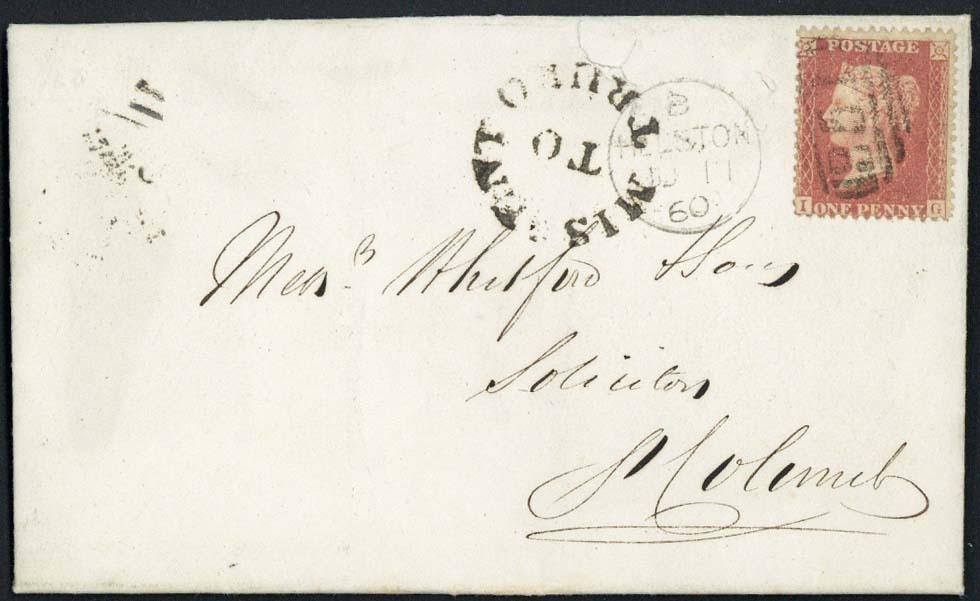 POSTAGE
I ONE PENNY G
B
HELSTON
JU 11
60
MISSENT
TO
TRURO
Messrs Whitford & Sons
Solicitors
St Columb